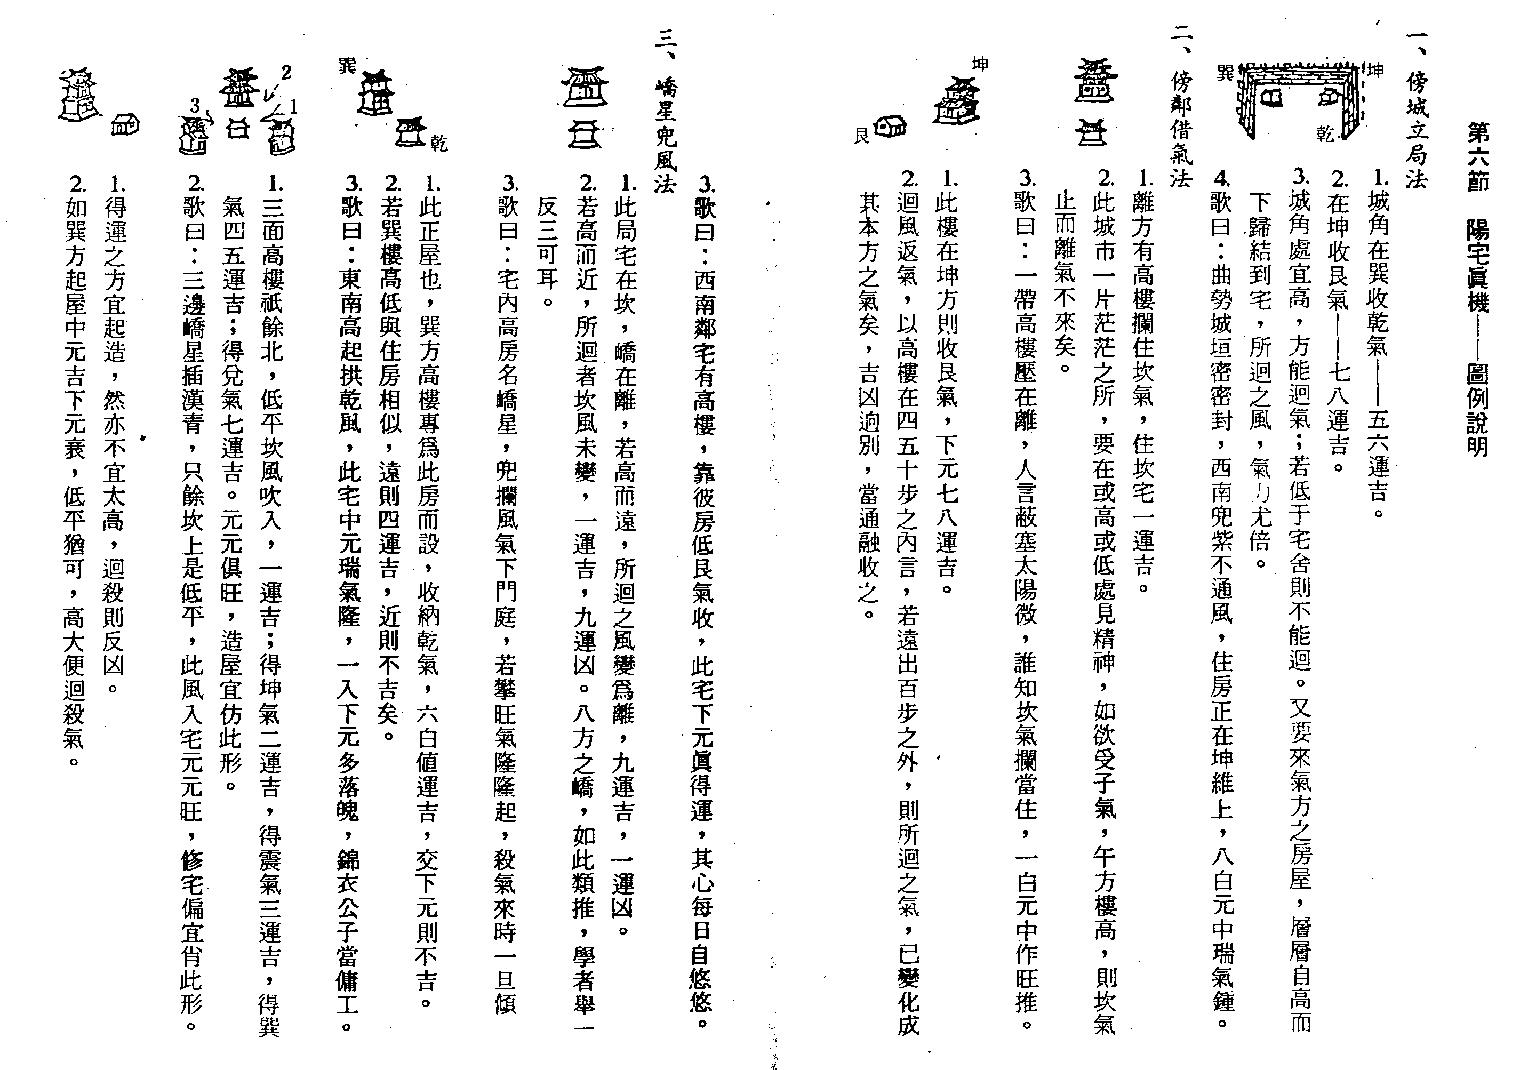 第六節　陽宅眞機——圖例說明
一、傍城立局法
巽
坤
乾
1.城角在巽收乾氣——五六運吉。
2.在坤收艮氣——七八運吉。
3.城角處宜高，方能迴氣；若低于宅舍則不能迴。又要來氣方之房屋，層層自高而
下歸結到宅，所迴之風，氣力尤倍。
4.歌曰：曲勢城垣密密封，西南兜紫不通風，住房正在坤維上，八白元中瑞氣鍾。
二、傍鄰借氣法
1.離方有高樓攔住坎氣，住坎宅一運吉。
2.此城市一片茫茫之所，要在或高或低處見精神，如欲受子氣，午方樓高，則坎氣
止而離氣不來矣。
3.歌曰：一帶高樓壓在離，人言蔽塞太陽微，誰知坎氣攔當住，一白元中作旺推。
坤
艮
1.此樓在坤方則收艮氣，下元七八運吉。
2.迴風返氣，以高樓在四五十步之內言，若遠出百步之外，則所迴之氣，已變化成
其本方之氣矣，吉凶逈別，當通融收之。
3.歌曰：西南鄰宅有高樓，靠彼房低艮氣收，此宅下元眞得運，其心每日自悠悠。
三、嶠星兜風法
1.此局宅在坎，嶠在離，若高而遠，所迴之風變爲離，九運吉，一運凶。
2.若高而近，所迴者坎風未變，一運吉，九運凶。八方之嶠，如此類推，學者舉一
反三可耳。
3.歌曰：宅內高房名嶠星，兜攔風氣下門庭，若攀旺氣隆隆起，殺氣來時一旦傾
巽
乾
1.此正屋也，巽方高樓專爲此房而設，收納乾氣，六白値運吉，交下元則不吉。
2.若巽樓高低與住房相似，遠則四運吉，近則不吉矣。
3.歌曰：東南高起拱乾風，此宅中元瑞氣隆，一入下元多落魄，錦衣公子當傭工。
2
1
3
1.三面高樓祇餘北，低平坎風吹入，一運吉；得坤氣二運吉，得震氣三運吉，得巽
氣四五運吉；得兌氣七運吉。元元俱旺，造屋宜仿此形。
2.歌曰：三邊嶠星插漢青，只餘坎上是低平，此風入宅元元旺，修宅偏宜肖此形。
1.得運之方宜起造，然亦不宜太高，迴殺則反凶。
2.如巽方起屋中元吉下元衰，低平猶可，高大便迴殺氣。